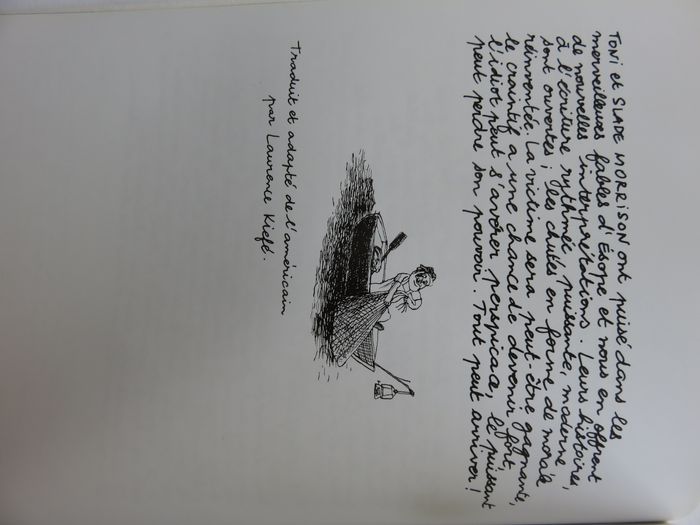 TONI et SLADE MORRISON ont puisé dans les
merveilleuses fables d'Ésope et nous en offrent
de nouvelles interprétations. Leurs histoires,
à l'écriture rythmée, puissante, moderne
sont ouvertes ; les chutes en forme de morale
réinventée. La victime sera peut-être gagnante,
le craintif a une chance de devenir fort,
l'idiot peut s'avérer perspicace, le puissant
peut perdre son pouvoir. Tout peut arriver !
Traduit et adapté de l'américain
par Laurence Kiefé.